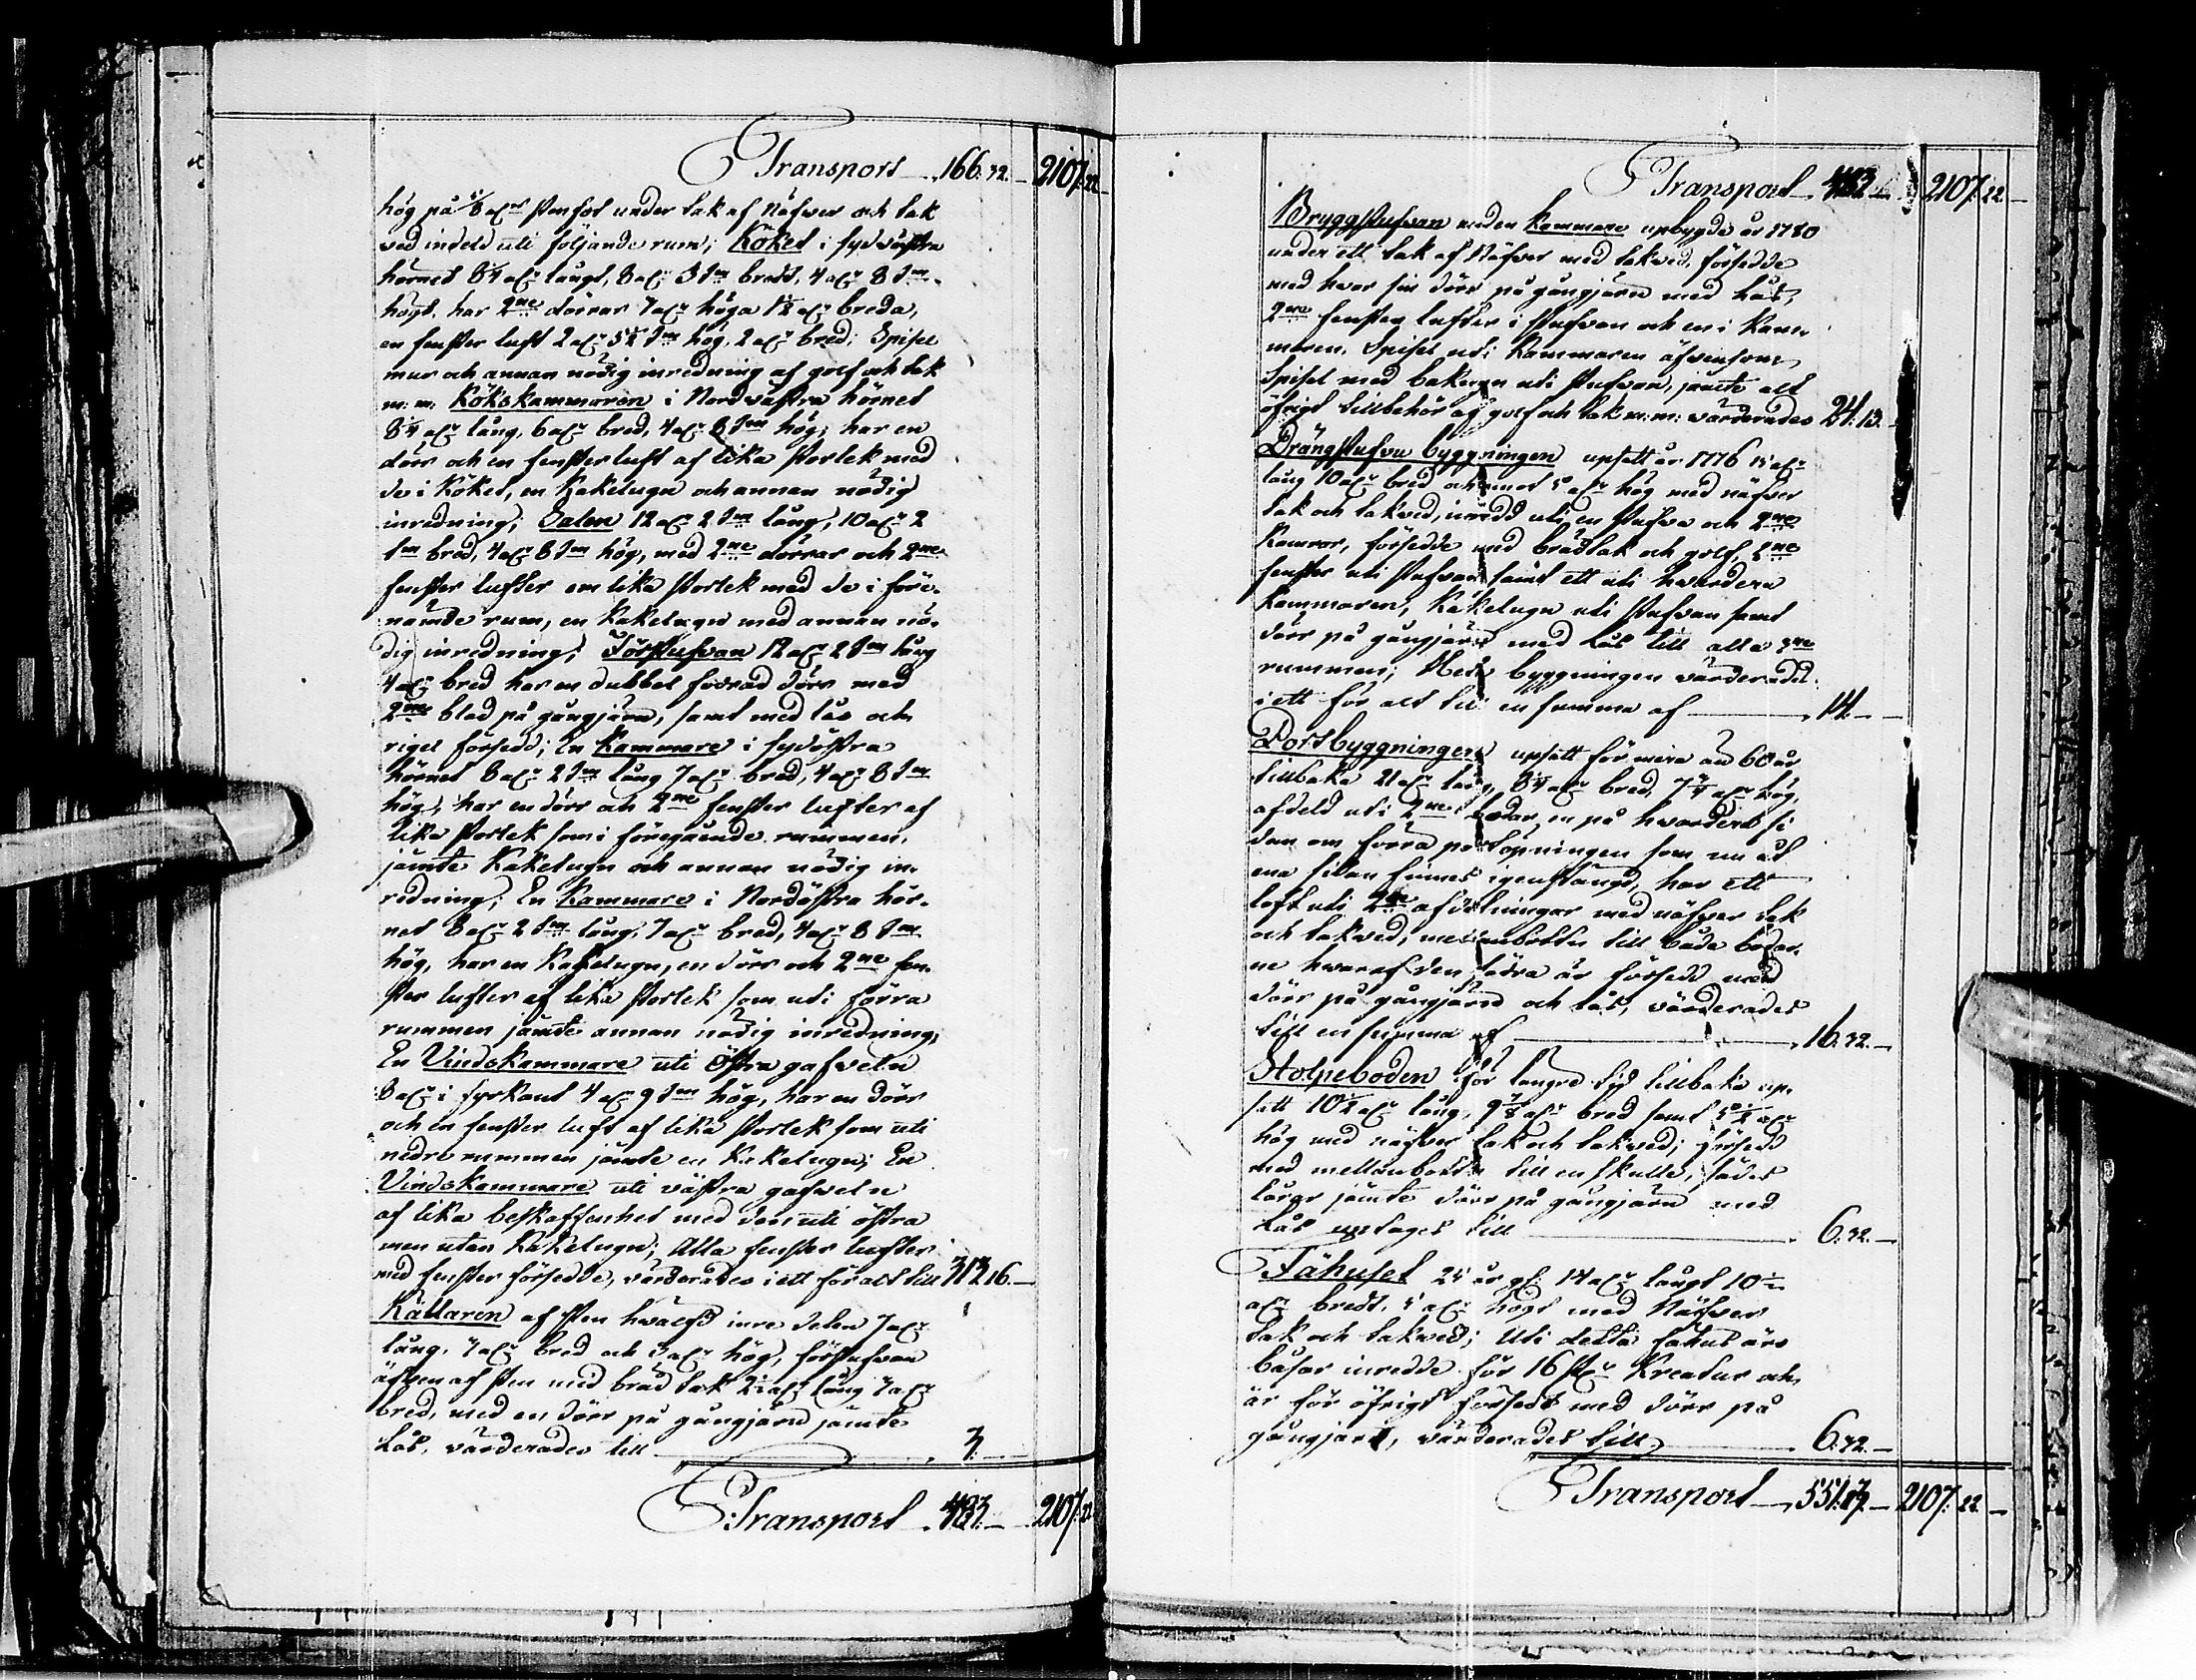 Transport 166.32. 2107.22
hög på 5/8 aln:r stenfot under tak af Näfver och tak
ved indeld uti följande rum; Köket i sydvästra
hörnet 8¼ aln:r långt, 8 aln:r 3 t:m bredt, 4 aln:r 8 t:m
högt, har 2:ne dörrar 7 aln:r höga 1½ aln:r breda,
en fenster luft 2 aln:r 5½ t:m hög, 2 aln:r bred; Spisel
mur och annan nödig inredning af golf och tak
m: m: Kökskammaren i Nordvästra hörnet
8¼ aln:r lång, 6 aln:r bred, 4 aln:r 8 t:m hög; har en
dörr och en fensterluft af lika storlek med
de i Köket, en Kakelugn och annan nödig
inredning; Salen 12 aln:r 2 t:m lång, 10 aln:r 2
t:m bred, 4 aln:r 8 t:m hög, med 2:ne dörrar och 2:ne
fenster lufter om lika storlek med de i före-
nämde rum, en Kakelugn med annan nö-
dig inredning; Förstufvan 12 aln:r 2 t:m lång
4 aln:r bred har en dubbel fodrad dörr med
2:ne blad på gångjärn, samt med lås och
rigel försedd; En Kammare i sydöstra
hörnet 8 aln:r 2 t:m lång 7 aln:r bred, 4 aln:r 8 t:m
hög, har en dörr och 2:ne fenster lufter af
lika storlek som i föregående rummen,
jämte Kakelugn och annan nödig in-
redning; En Kammare i Nordöstra hör-
net 8 aln:r 2 t:m lång, 7 aln:r bred, 4 aln:r 8 t:m
hög, har en Kakelugn, en dörr och 2:ne fen-
ster lufter af lika storlek som uti förra
rummen jämte annan nödig inredning;
En Vindskammare uti Östra gafveln
8 aln:r i fyrkant 4 aln:r 9 t:m hög, har en dörr
och en fenster luft af lika storlek som uti
nedre rummen jämte en Kakelugn; En
Vindskammare uti västra gafveln
af lika beskaffenhet med den uti östra
men utan Kakelugn; Alla fenster lufter
med fenster försedde, värderades i ett för alt till 313.16.
Källaren af sten hvälfd inre delen 7 aln:r
lång, 7 aln:r bred och 3 aln:r hög, förstufvan
äfven af sten med bräd tak 2½ aln:r lång 7 aln:r
bred, med en dörr på gångjärn jämte
Lås, värderades till 3.
Transport 483. 2107.22
Transport 483. 2107.22
Bryggstufvan med en Kammare upbygde år 1780
under ett tak af Näfver med takved, försedde
med hvar sin dörr på gångjärn med lås,
2:ne fenster lufter i stufvan och en i Kam-
maren, Spisel uti Kammaren äfvensom
Spisel med bakugn uti stufvan, jämte alt
öfrigt tillbehör af golf och tak m: m: värderades 24.13.
Drängstufvu byggningen upsatt år 1776 15 aln:r
lång 10 aln:r bred och emot 5 aln:r hög med näfver
tak och takved, inredd uti en stufva och 2:ne
Kamrar, försedde med brädtak och golf, 2:ne
fenster uti stufvan samt ett uti hvardera
Kammaren, Kakelugn uti stufvan samt
dörr på gångjärn med Lås till alla 3:ne
rummen; Hela byggningen värderades
i ett för alt till en summa af 14.
Portbyggningen upsatt för mera än 60 år
tillbaka 21 aln:r lång, 8¼ aln:r bred, 7¾ aln:r hög,
afdeld uti 2:ne bodar, en på hvardera si
dan om förra portöpningen som nu åt
ena sidan finnes igenstängd, har ett
loft uti 2:ne afdelningar med näfver tak
och takved, mellanbotten till båda bodar-
ne hvaraf den södra är försedd med
dörr på gångjärn och lås, värderades
till en summa af 16.32.
Stolpeboden för längre tid tillbaka up-
satt 10½ aln:r lång, 9⅞ aln:r bred samt 5½ aln:r
hög med näfver tak och takved; försedd
med mellanbotten till en skulle, sädes
lårar jämte dörr på gångjärn med
Lås uptages till 6.32.
Fähuset 25 år gl: 14 aln:r långt 10½
aln:r bredt, 5 aln:r högt med Näfver
tak och takved; Uti detta fähus äro
båsar inredde för 16 st:n Kreatur och
är för öfrigt försedt med dörr på
gångjärn, värderades till 6.32.
Transport 551.13. 2107.22